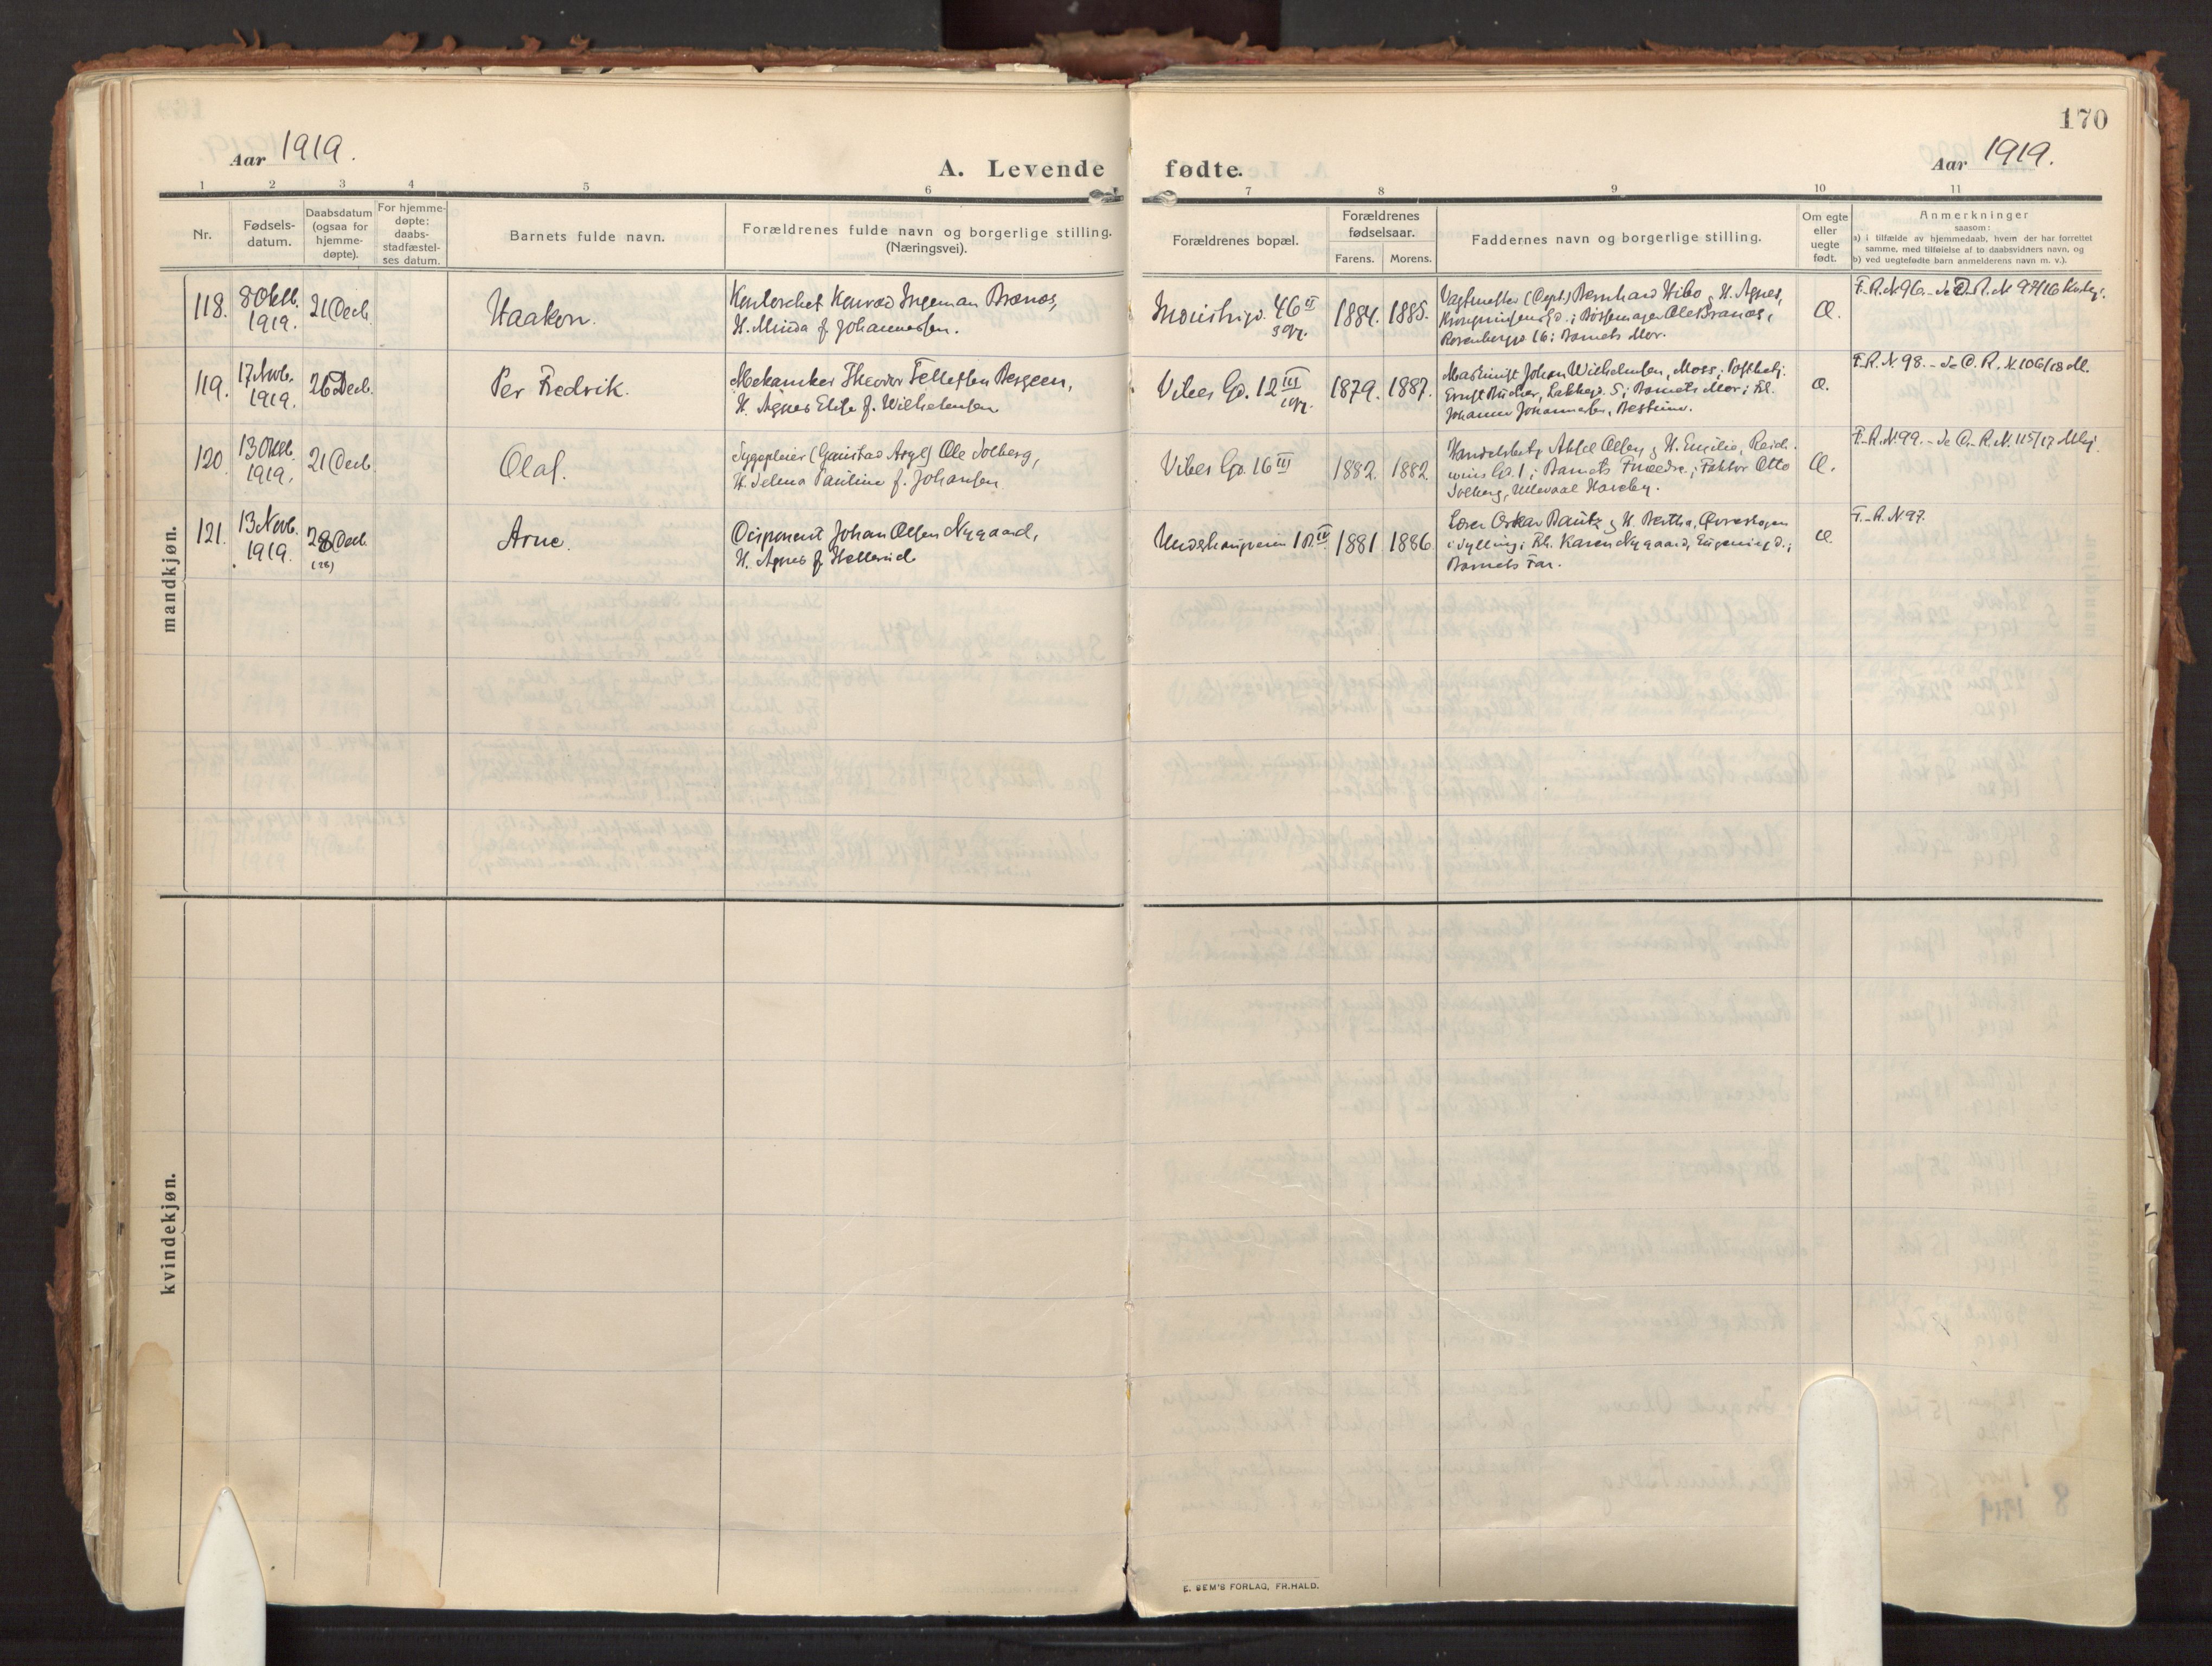 170
Aar 1919.
A. Levende fødte.
Aar 1919.
1 2 3 4 5 6 7 8 9 10 11
Nr.
Fødsels-
datum.
Daabsdatum
(ogsaa for
hjemme-
døpte).
For hjemme-
døpte:
daabs-
stadfæstel-
ses datum.
Barnets fulde navn.
Forældrenes fulde navn og borgerlige stilling.
(Næringsvei).
Forældrenes bopæl.
Forældrenes
fødselsaar.
Farens. Morens.
Faddernes navn og borgerlige stilling.
Om egte
eller
uegte
født.
Anmerkninger
saasom:
a) i tilfælde av hjemmedaab, hvem der har forrettet
samme, med tilføielse av to daabsvidners navn, og
b) ved uegtefødte barn anmelderens navn m. v.).
mandkjøn.
118.
8 Oktb.
1919.
21 Decb.
Haakon.
Kontorchef Konrad Ingeman Branæs,
H. Minda f. Johannessen.
46 II
1884. 1885.
Vagtmester (Dept.) Bernhard Hibo & H. Agnes,
Bøssemager Ole Branæs,
Rosenborggd. 16; Barnets Mor.
Æ.
F.-R. N 96.
119.
17 Novb.
1919.
26 Decb.
Per Fredrik.
Mekaniker Theodor Tellefsen Bergeen,
H. Agnes Elise f. Wilhelmsen
Vibes Gd. 12 III
opg.
1879. 1887.
Maskinist Johan Wilhelmsen, Moss;
Lakkegt. 5; Barnets Mor; Fk.
Johanne Johannessen, Bestemor.
Æ.
F.R. N. 98. - R. N. 106/18
120.
13 Oktb.
1919.
21 Decb.
Olaf.
Sygepleier (Gaustad Asyl) Ole Solberg,
H. Selma Pauline f. Johansen
Vibes Gd. 16 III
1882. 1882.
Aksel Olsen & H. Emilie,
Gd. 1; Barnets Forældre; Faktor Otto
Solberg, Ullevaal Haveby.
Æ.
F.-R. N. 99. - R. N. 115/17
121.
13 Novb.
1919.
28 Decb.
(28)
Arne.
Disponent Johan Olsen Nygaard,
H. Agnes f. Hellerud
IV
1881 1886
Oskar & H. Bertha,
i Sylling; Fk. Karen Nygaard, Eugeniegd.;
Barnets Far.
Æ.
F.-R. N 97.
kvindekjøn.
E. SEM'S FORLAG, FR.HALD.